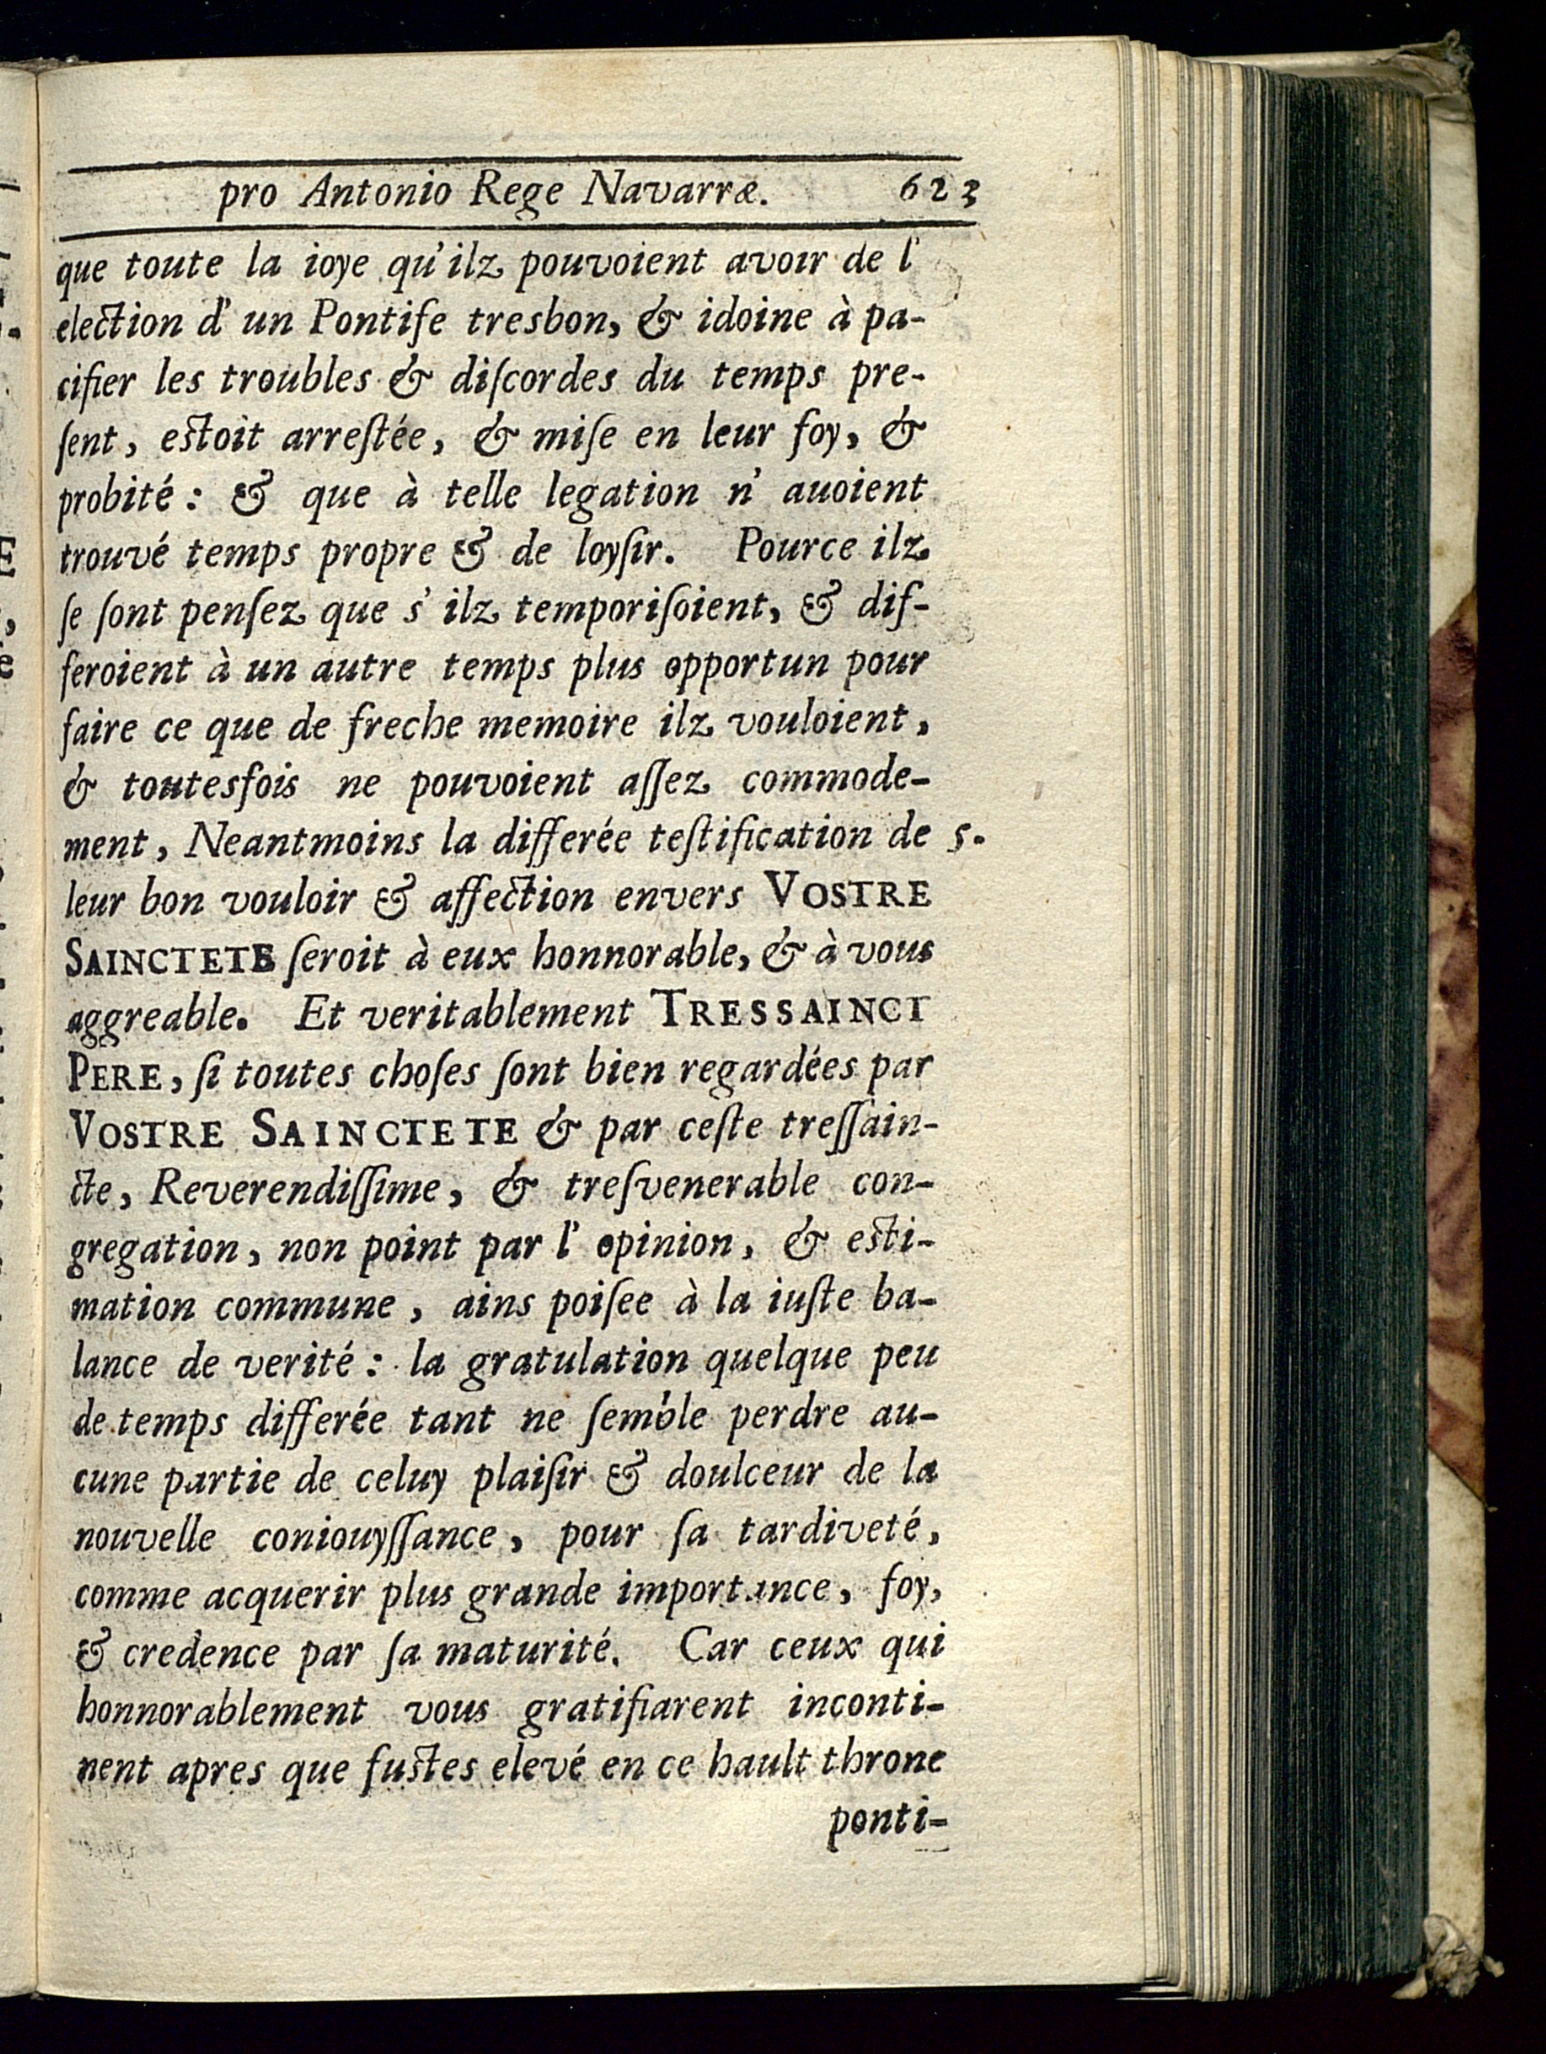 pro Antonio Rege Navarræ. 623
que toute la ioye qu'ilz pouvoient avoir de l'
election d'un Pontife tresbon, & idoine à pa-
cifier les troubles & diſcordes du temps pre-
ſent, estoit arreſtée, & miſe en leur foy, &
probité : & que à telle legation n' auoient
trouvé temps propre & de loyſir. Pource ilz
ſe ſont penſez que s' ilz temporiſoient, & dif-
feroient à un autre temps plus opportun pour
faire ce que de freche memoire ilz vouloient,
& toutesfois ne pouvoient aſſez commode-
ment, Neantmoins la differée teſtification de 5.
leur bon vouloir & affection envers VOSTRE
SAINCTETE ſeroit à eux honnorable, & à vous
aggreable. Et veritablement TRESSAINCT
PERE, ſi toutes choſes ſont bien regardées par
VOSTRE SAINCTETE & par ceſte treſſain-
cte, Reverendiſſime, & treſvenerable con-
gregation, non point par l' opinion, & esti-
mation commune, ains poiſee à la iuſte ba-
lance de verité : la gratulation quelque peu
de temps differée tant ne ſemble perdre au-
cune partie de celuy plaiſir & doulceur de la
nouvelle coniouyſſance, pour ſa tardiveté,
comme acquerir plus grande importance, foy,
& credence par ſa maturité. Car ceux qui
honnorablement vous gratifiarent inconti-
nent apres que fustes elevé en ce hault throne
ponti-